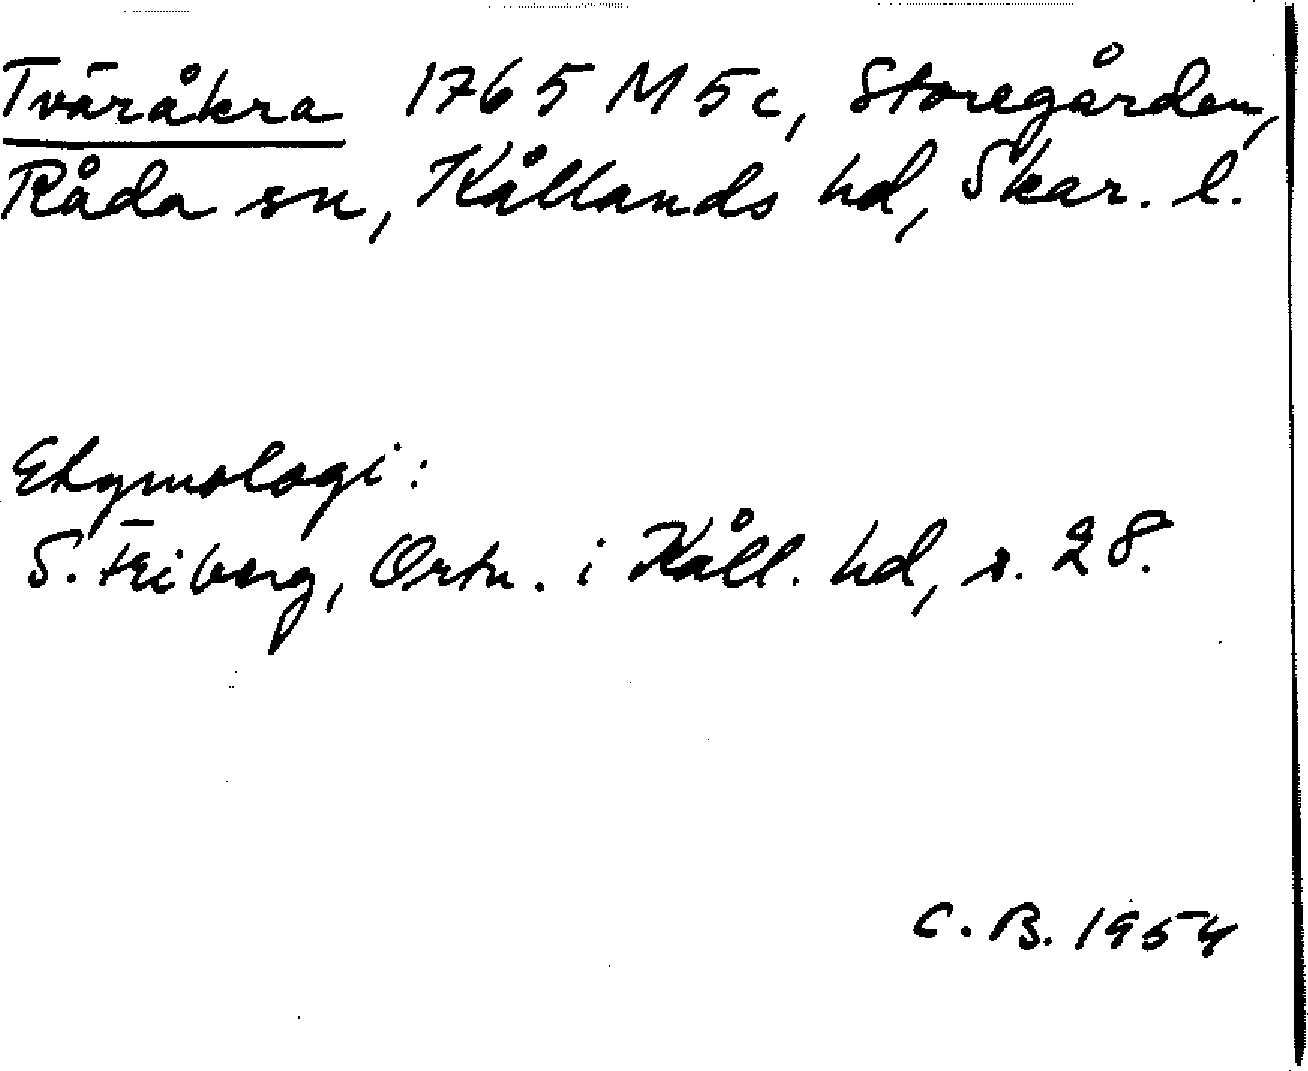 Tväråkra 1765 M 5c, Storegården,
Råda sn, Kållands hd, Skar. l.
Etymologi:
S. Feiborg, Ortn. i Kåll. hd, s. 28.
C. B. 1954